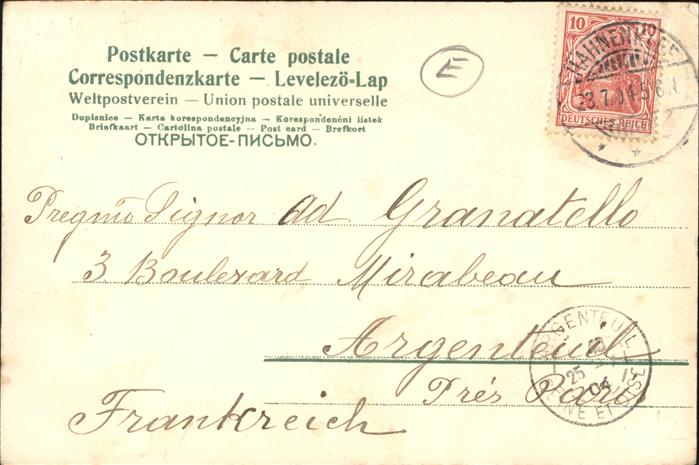 Postkarte — Carte postale
Correspondenzkarte — Levelezö-Lap
Weltpostverein — Union postale universelle
Dopisnice — Karta korespondencyjna — Korespondenční listek
Briefkaart — Cartolina postale — Post card — Brefkort
ОТКРЫТОЕ-ПИСЬМО.
E
10 10
HAHNENKLEE
23.7.04.5-6N.
DEUTSCHES REICH
Pregmo Signor ad Granatello
3 Boulevard Mirabeau
Argenteuil
Près Paris
Frankreich
ARGENTEUIL
25
04
SEINE ET OISE